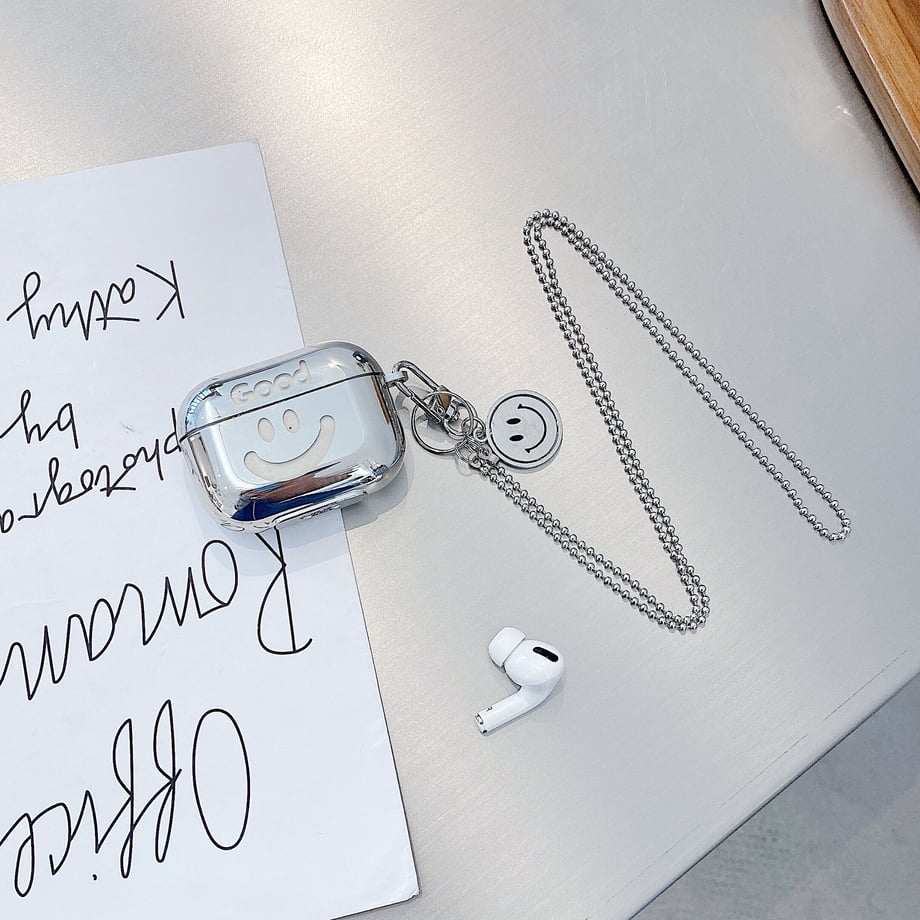 Good
Office
Roman
photogra
by
Kathy